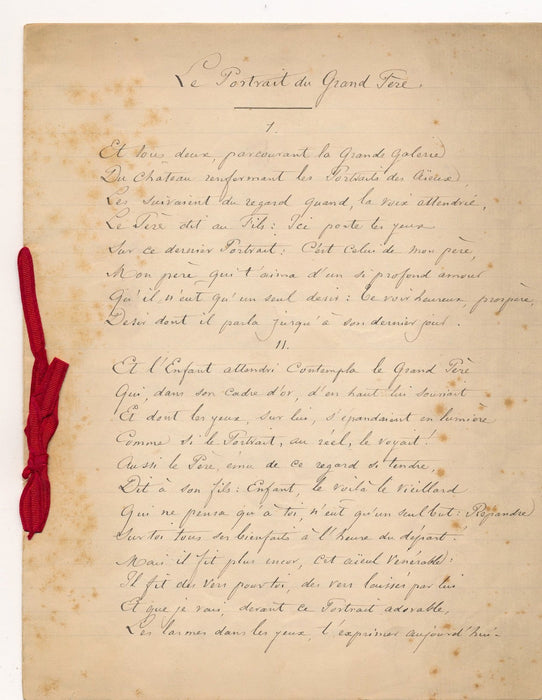 Le Portrait du Grand Père.
I.
Et tous deux, parcourant la Grande galerie
Du Château renfermant les Portraits des Aïeux,
Les suivaient du regard quand, la voix attendrie,
Le Père dit au Fils: Ici porte tes yeux
Sur ce dernier Portrait: C'est celui de mon père,
Mon père qui t'aima d'un si profond amour
Qu'il n'eut qu'un seul desir: Te voir heureux, prospère,
Desir dont il parla jusqu'à son dernier jour.
II.
Et l'Enfant attendri Contempla le Grand Père
Qui, dans son cadre d'or, d'en haut lui souriait
Et dont les yeux, sur lui, s'épandaient en lumière
Comme si le Portrait, au réel, le voyait!
Aussi le Père, ému de ce regard si tendre,
Dit à son fils: Enfant, le voilà le vieillard
Qui ne pensa qu'à toi, n'eut qu'un seul but: Répandre
Sur toi tous ses bienfaits à l'heure du départ.
Mais il fit plus encor, cet aïeul vénérable:
Il fit des vers pour toi, des vers laissés par lui
Et que je vais, devant ce Portrait adorable,
Les larmes dans les yeux, t'exprimer aujourd'hui-